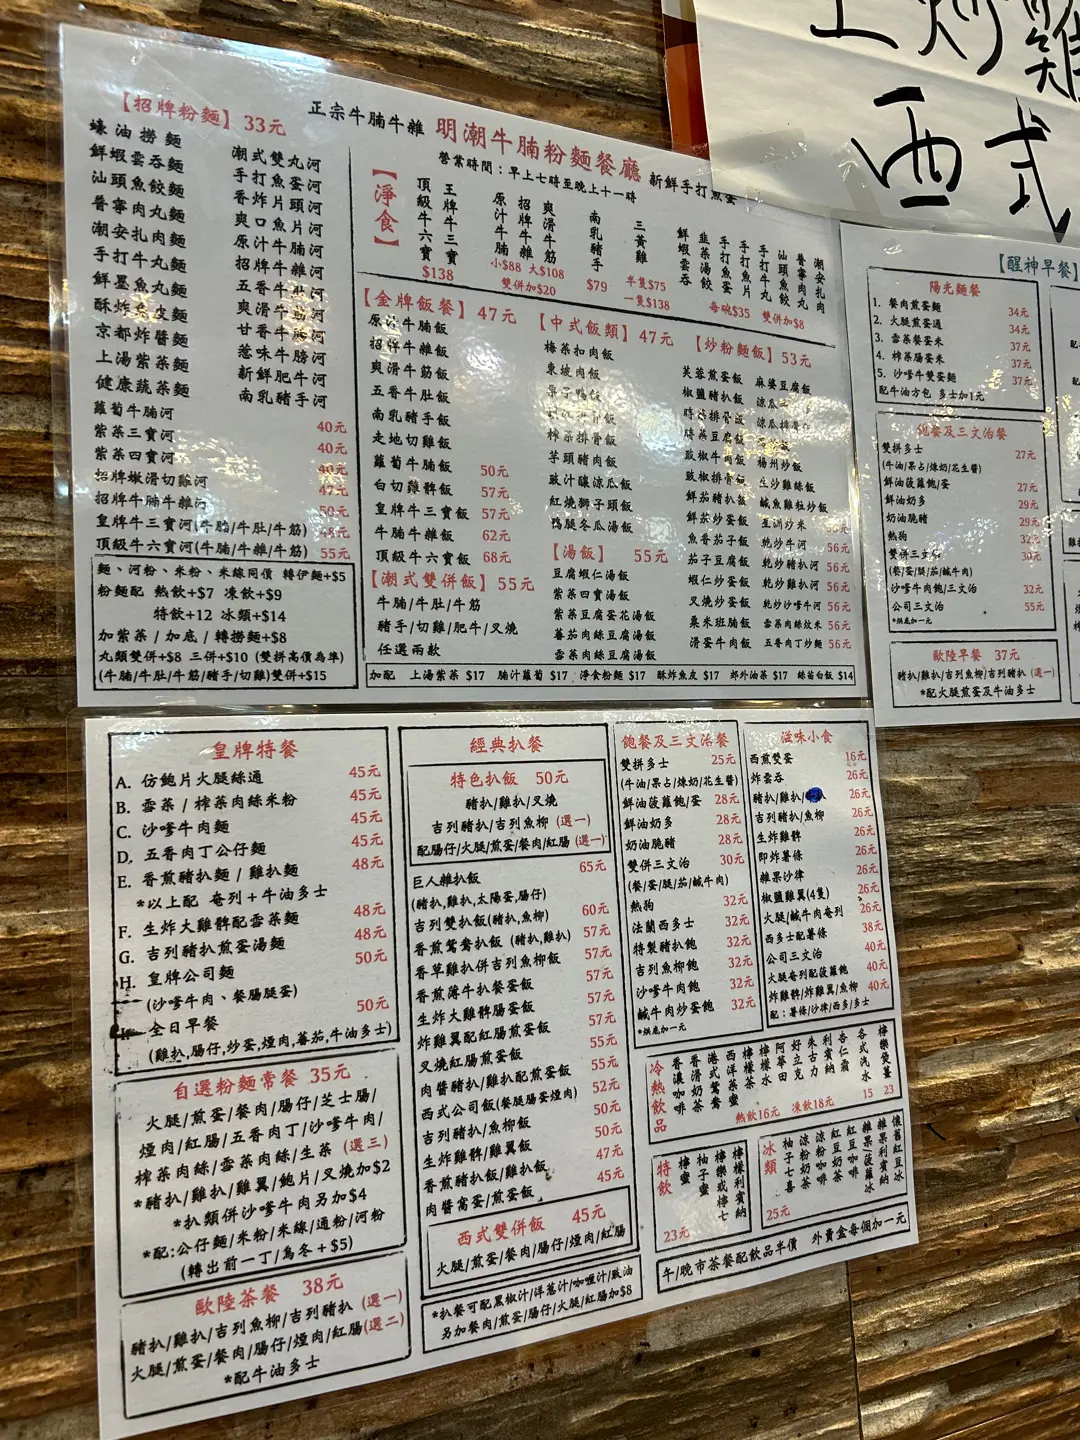 正宗牛腩牛雜 明潮牛腩粉麵餐廳 新鮮手打魚蛋
營業時間：早上七時至晚上十一時
【招牌粉麵】33元
蠔油撈麵
鮮蝦雲吞麵
汕頭魚餃麵
普寧肉丸麵
潮安扎肉麵
手打牛丸麵
鮮墨魚丸麵
酥炸魚皮麵
京都炸醬麵
上湯紫菜麵
健康蔬菜麵
潮式雙丸河
手打魚蛋河
香炸片頭河
爽口魚片河
原汁牛腩河
招牌牛雜河
五香牛肚河
爽滑牛筋河
甘香牛𦟌河
惹味牛膀河
新鮮肥牛河
南乳豬手河
蘿蔔牛腩河 40元
紫菜三寶河 40元
紫菜四寶河 40元
招牌嫩滑切雞河 47元
招牌牛腩牛雜河 50元
皇牌牛三寶河(牛腩/牛肚/牛筋)
頂級牛六寶河(牛腩/牛雜/牛筋) 55元
麵、河粉、米粉、米線同價 轉伊麵+$5
粉麵配 熱飲+$7 凍飲+$9
特飲+12 冰類+$14
加紫菜 / 加底 / 轉撈麵+$8
丸類雙併+$8 三併+$10 (雙拼高價為準)
(牛腩/牛肚/牛筋/豬手/切雞)雙併+$15
【淨食】
頂級牛六寶 王牌牛三寶
$138
原汁牛腩 招牌牛雜 爽滑牛筋
小$88 大$108
雙併加$20
南乳豬手
$79
三黃雞
半隻$75
一隻$138
鮮蝦雲吞 韭菜湯餃 手打魚蛋 手打魚片 手打牛丸 汕頭魚餃 普寧肉丸 潮安扎肉
每碗$35 雙併加$8
【金牌飯餐】47元
原汁牛腩飯
招牌牛雜飯
爽滑牛筋飯
五香牛肚飯
南乳豬手飯
走地切雞飯
蘿蔔牛腩飯 50元
白切雞髀飯 57元
皇牌牛三寶飯 57元
牛腩牛雜飯 62元
頂級牛六寶飯 68元
【潮式雙併飯】55元
牛腩/牛肚/牛筋
豬手/切雞/肥牛/叉燒
任選兩款
【中式飯類】47元
梅菜扣肉飯
東坡肉飯
榨菜排骨飯
芋頭豬肉飯
豉汁釀涼瓜飯
紅燒獅子頭飯
鴨腿冬瓜湯飯
【湯飯】 55元
豆腐蝦仁湯飯
紫菜四寶湯飯
紫菜豆腐蛋花湯飯
蕃茄肉絲豆腐湯飯
雪菜肉絲豆腐湯飯
【炒粉麵飯】53元
芙蓉煎蛋飯
椒鹽豬扒飯
時菜豆腐飯
豉椒牛肉飯
豉椒排骨飯
鮮茄豬扒飯
鮮茄炒蛋飯
魚香茄子飯
茄子豆腐飯
蝦仁炒蛋飯
叉燒炒蛋飯
粟米班腩飯
滑蛋牛肉飯
麻婆豆腐飯
楊州炒飯
生炒雞絲飯
鹹魚雞粒炒飯
星洲炒米 56元
乾炒牛河 56元
乾炒豬扒河 56元
乾炒雞扒河 56元
乾炒沙嗲牛河 56元
雪菜肉絲炆米 56元
五香肉丁炒麵 56元
加配 上湯紫菜 $17 腩汁蘿蔔 $17 淨食粉麵 $17 酥炸魚皮 $17 郊外油菜 $17 絲苗白飯 $14
【醒神早餐】
陽光麵餐
1. 餐肉煎蛋麵 34元
2. 火腿煎蛋通 34元
3. 雪菜餐蛋米 37元
4. 榨菜腸蛋米 37元
5. 沙嗲牛雙蛋麵 37元
配牛油方包 多士加1元
飽餐及三文治餐
雙拼多士 27元
(牛油/果占/煉奶/花生醬)
鮮油菠蘿飽/蛋 27元
鮮油奶多 29元
奶油脆豬 29元
熱狗 32元
雙併三文治 30元
(餐/蛋/腿/茄/鹹牛肉)
沙嗲牛肉飽/三文治 32元
公司三文治 55元
*烘底加一元
歐陸早餐 37元
豬扒/雞扒/吉列魚柳/吉列豬扒 (選一)
*配火腿煎蛋及牛油多士
西式
皇牌特餐
A. 仿鮑片火腿絲通 45元
B. 雪菜 / 榨菜肉絲米粉 45元
C. 沙嗲牛肉麵 45元
D. 五香肉丁公仔麵 45元
E. 香煎豬扒麵 / 雞扒麵 48元
*以上配 奄列＋牛油多士
F. 生炸大雞髀配雪菜麵 48元
G. 吉列豬扒煎蛋湯麵 48元
H. 皇牌公司麵 50元
(沙嗲牛肉、餐腸腿蛋)
全日早餐 50元
(雞扒,腸仔,炒蛋,煙肉,蕃茄,牛油多士)
自選粉麵常餐 35元
火腿/煎蛋/餐肉/腸仔/芝士腸/
煙肉/紅腸/五香肉丁/沙嗲牛肉/
榨菜肉絲/雪菜肉絲/生菜 (選三)
*豬扒/雞扒/雞翼/鮑片/叉燒加$2
*扒類併沙嗲牛肉另加$4
*配:公仔麵/米粉/米線/通粉/河粉
(轉出前一丁/烏冬＋$5)
歐陸茶餐 38元
豬扒/雞扒/吉列魚柳/吉列豬扒 (選一)
火腿/煎蛋/餐肉/腸仔/煙肉/紅腸(選二)
*配牛油多士
經典扒餐
特色扒飯 50元
豬扒/雞扒/叉燒
吉列豬扒/吉列魚柳 (選一)
配腸仔/火腿/煎蛋/餐肉/紅腸 (選一)
巨人雜扒飯 65元
(豬扒,雞扒,太陽蛋,腸仔)
吉列雙扒飯(豬扒,魚柳) 60元
香煎鴛鴦扒飯 (豬扒,雞扒) 57元
香草雞扒併吉列魚柳飯 57元
香煎薄牛扒餐蛋飯 57元
生炸大雞髀腸蛋飯 57元
炸雞翼配紅腸煎蛋飯 57元
叉燒紅腸煎蛋飯 55元
肉醬豬扒/雞扒配煎蛋飯 55元
西式公司飯(餐腿腸蛋煙肉) 52元
吉列豬扒/魚柳飯 50元
生炸雞髀/雞翼飯 50元
香煎豬扒飯/雞扒飯 47元
肉醬窩蛋/煎蛋飯 45元
西式雙併飯 45元
火腿/煎蛋/餐肉/腸仔/煙肉/紅腸
*扒餐可配黑椒汁/洋葱汁/咖喱汁/豉油
另加餐肉/煎蛋/腸仔/火腿/紅腸加$8
飽餐及三文治餐
雙拼多士 25元
(牛油/果占/煉奶/花生醬)
鮮油菠蘿飽/蛋 28元
鮮油奶多 28元
奶油脆豬 28元
雙併三文治 30元
(餐/蛋/腿/茄/鹹牛肉)
熱狗 32元
法蘭西多士 32元
特製豬扒飽 32元
吉列魚柳飽 32元
沙嗲牛肉飽 32元
鹹牛肉炒蛋飽 32元
*烘底加一元
滋味小食
西煎雙蛋 16元
炸雲吞 26元
豬扒/雞扒/ 26元
吉列豬扒/魚柳 26元
生炸雞髀 26元
即炸薯條 26元
雜果沙律 26元
椒鹽雞翼(4隻) 26元
火腿/鹹牛肉奄列 26元
西多士配薯條 38元
公司三文治 40元
火腿奄列配菠蘿飽 40元
炸雞髀/炸雞翼/魚柳 40元
配：薯條/沙律/西多/多士
冷熱飲品
香濃咖啡 香滑奶茶 港式鴛鴦 西洋菜蜜 檸檬茶 檸檬水 阿華田 好立克 朱古力 利賓納 杏仁霜 各式汽水 檸樂煲薑
熱飲16元 凍飲18元 15 23
特飲
檸蜜 柚子蜜 檸樂或檸七 檸檬利賓納
23元
冰類
柚子七喜 涼粉奶茶 涼粉咖啡 紅豆奶茶 紅豆咖啡 雜果/菠蘿冰 雜果利賓納 懷舊紅豆冰
25元
午/晚市茶餐配飲品半價 外賣盒每個加一元